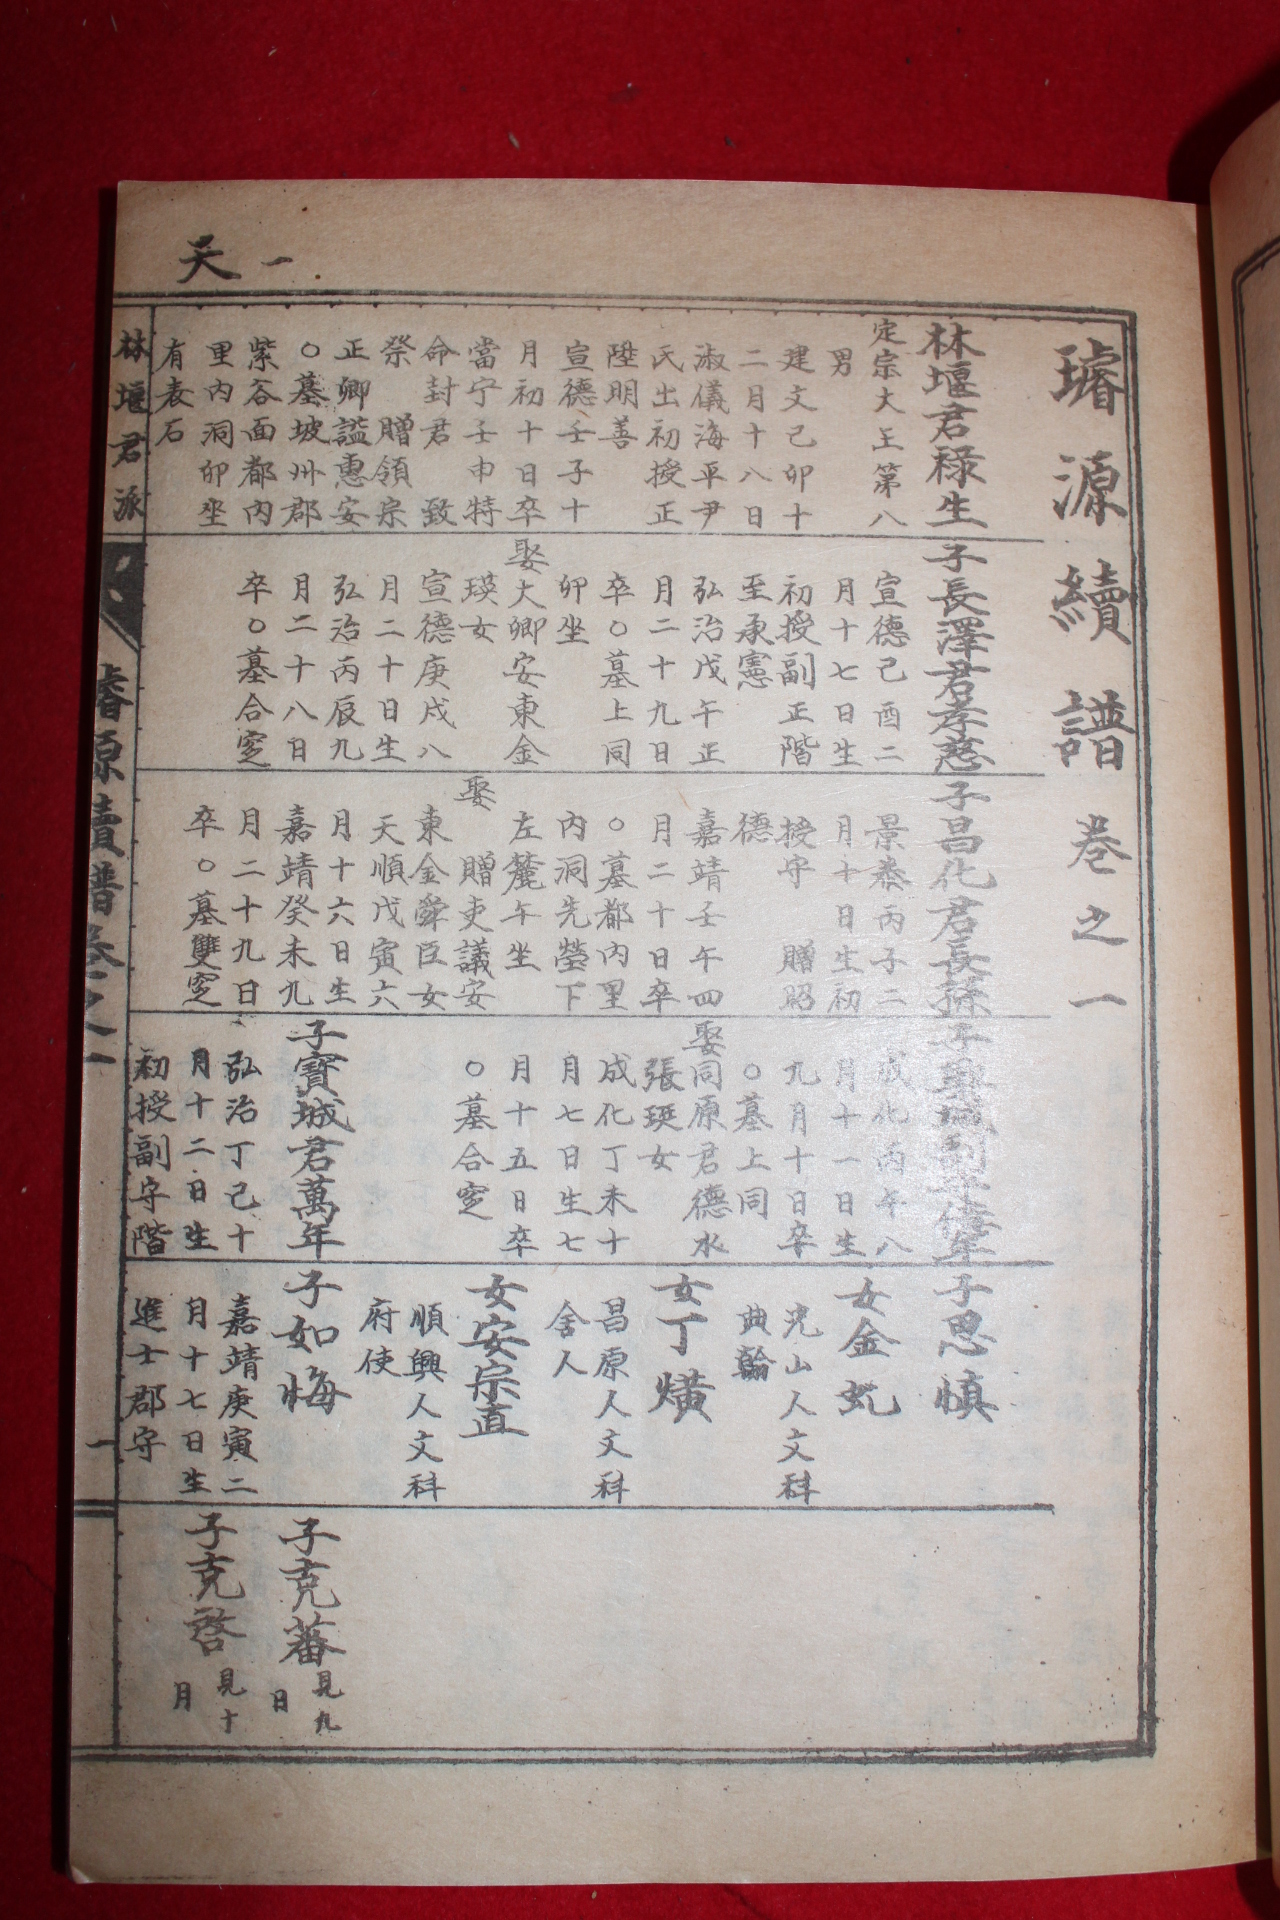 天一
璿源續譜卷之一
林堰君祿生
定宗大王第八
男
建文己卯十
二月十八日
淑儀海平尹
氏出初授正
陞明善
宣德壬子十
月初十日卒
當宁壬申特
命封君 致
祭 贈領宗
正卿諡惠安
○墓坡州郡
紫谷面都內
里內洞卯坐
有表石
子長澤君孝慈
宣德己酉二
月十七日生
初授副正階
至承憲
弘治戊午正
月二十九日
卒○墓上同
卯坐
娶大卿安東金
瑛女
宣德庚戌八
月二十日生
弘治丙辰九
月二十八日
卒○墓合窆
子昌化君長孫
景泰丙子二
月十日生初
授守 贈昭
德
嘉靖壬午四
月二十日卒
○墓都內里
內洞先塋下
左麓午坐
娶 贈吏議安
東金舜臣女
天順戊寅六
月十六日生
嘉靖癸未九
月二十九日
卒○墓雙窆
成化丙午八
月十一日生
九月十日卒
○墓上同
娶同原君德水
張珽女
成化丁未十
月七日生七
月十五日卒
○墓合窆
子寶城君萬年
弘治丁己十
月十二日生
初授副守階
子思愼
女金虬
光山人文科
典翰
女丁熿
昌原人文科
舍人
女安宗直
順興人文科
府使
子如悔
嘉靖庚寅二
月十七日生
進士郡守
子克蕃
見九
日
子克啓
見十
月
林堰君派
璿源續譜卷之一
一